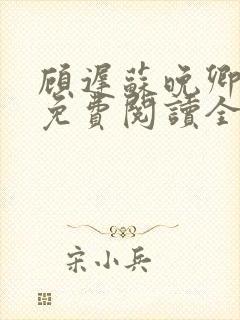 顾遲蘇晚卿
免費閱讀全
宋小兵